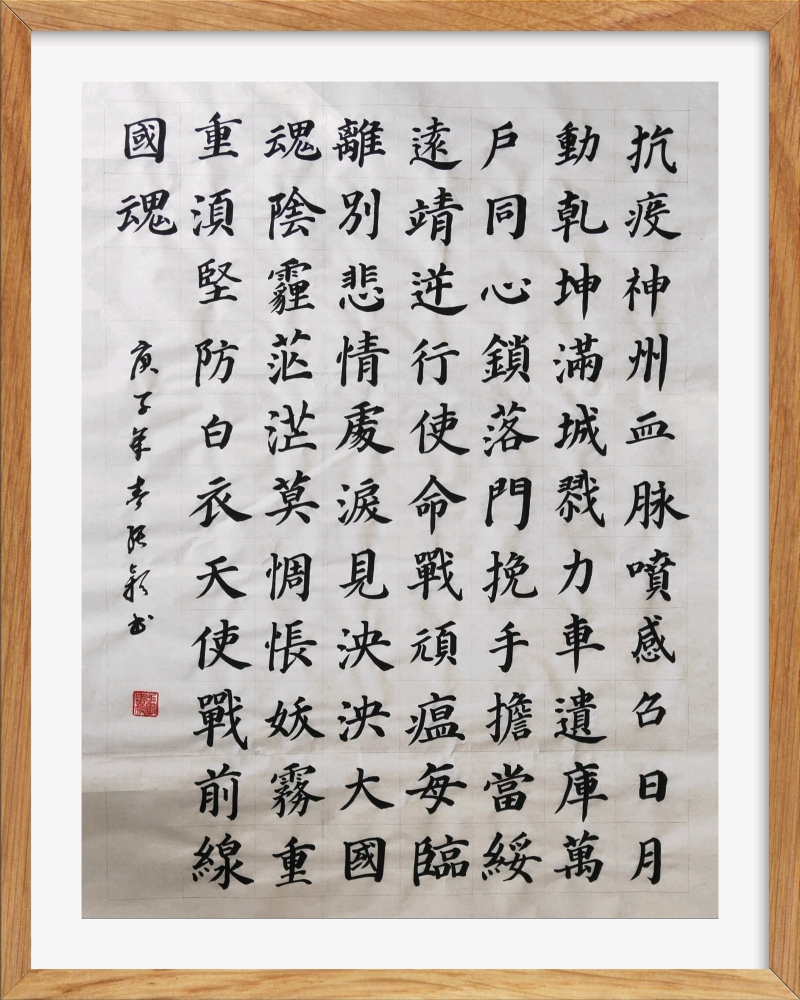 抗疫神州血脉噴感召日月
動乾坤滿城戮力車遺庫萬
戶同心鎖落門挽手擔當綏
遠靖逆行使命戰頑瘟每臨
離別悲情處淚見泱泱大國
魂陰霾茫茫莫惆悵妖霧重
重湏堅防白衣天使戰前線
國魂
庚子年春張穎书